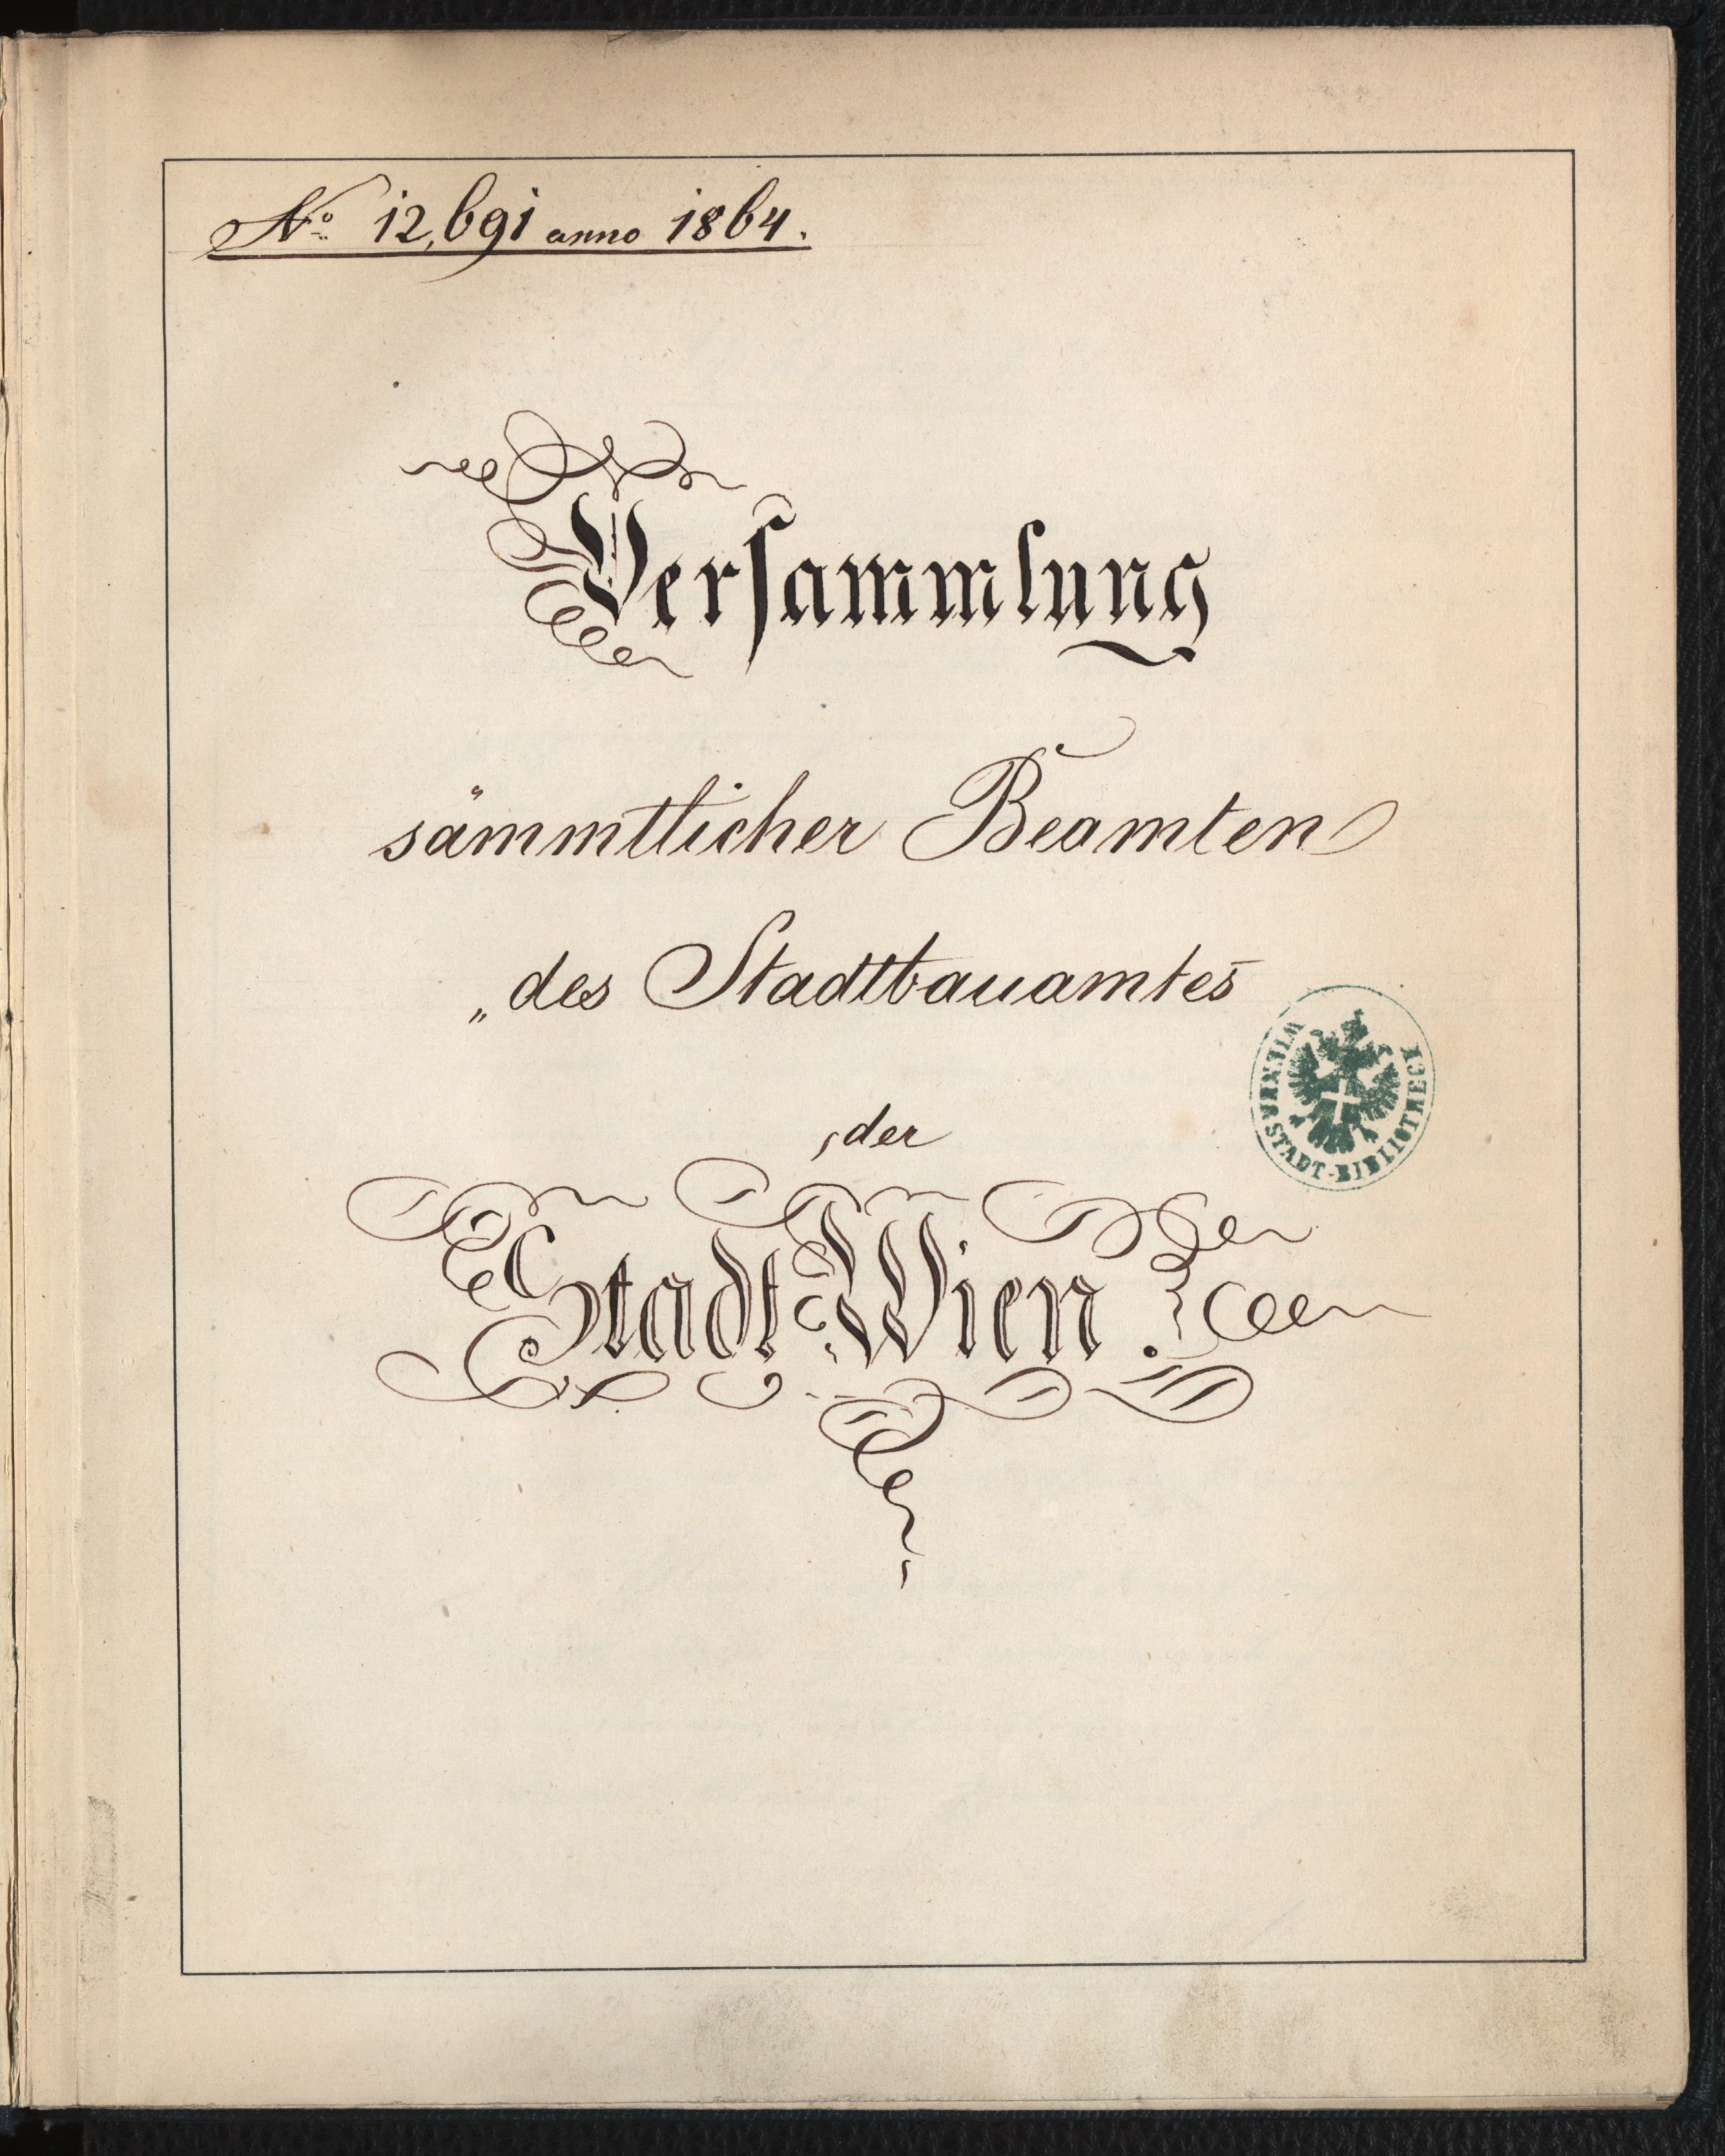 No. 12,691 anno 1864.
Versammlung
sämmtlicher Beamten
„des Stadtbauamtes
der
Stadt Wien.
WIENER STADT-BIBLIOTHECK